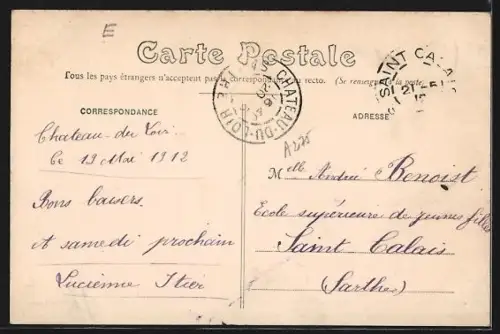 E
Carte Postale
Tous les pays étrangers n'acceptent pas la correspondance au recto. (Se renseigner à la poste.)
CORRESPONDANCE
ADRESSE
CHATEAU-DU-LOIR
SAINT CALAIS
21
A275
Chateau-du-Loir
le 19 Mai 1912
Bons baisers
A samedi prochain
Lucienne Itier
Melle Andrée Benoist
Ecole supérieure de jeunes filles
Saint Calais
(Sarthe)